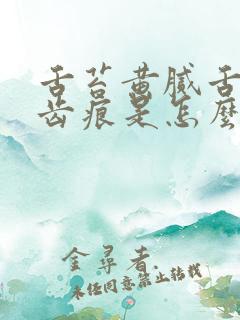 舌苔黄腻舌
齿痕是怎麼
金尋者.
未经同意禁止转载